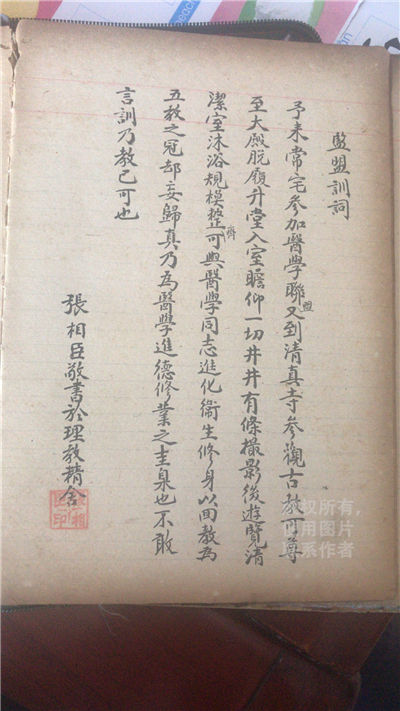 監盟訓詞
予来常宅參加醫學聯盟又到清真寺參觀古教可尊
至大殿脱履升堂入室瞻仰一切井井有條撮影後遊覽清
潔室沐浴規模整齊可與醫學同志進化衞生修身以回教為
五教之冠却妄歸真乃為醫學進德修業之圭臬也不敢
言訓乃教已可也
張相臣敬書於理教精舍
版权所有，
引用图片
联系作者
peace